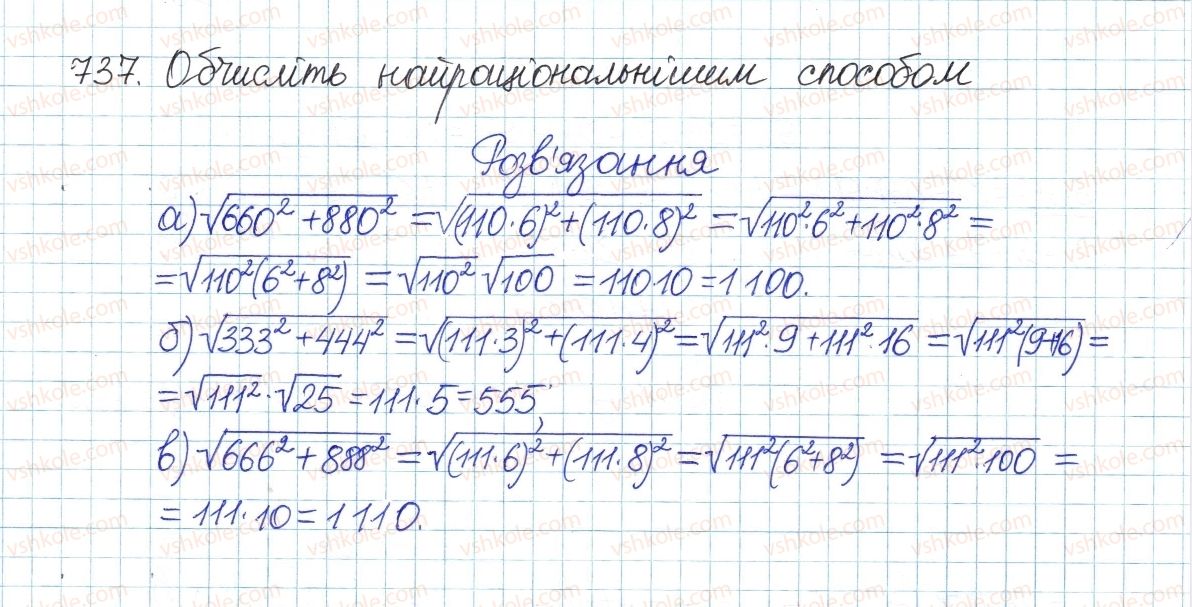 737. Обчисліть найраціональнішим способом
Розв'язання
а) √(660² + 880²) = √((110·6)² + (110·8)²) = √(110²·6² + 110²·8²) =
= √(110²(6² + 8²)) = √110² √100 = 110·10 = 1 100.
б) √(333² + 444²) = √((111·3)² + (111·4)²) = √(111²·9 + 111²·16) = √(111²(9+16)) =
= √111² · √25 = 111·5 = 555;
в) √(666² + 888²) = √((111·6)² + (111·8)²) = √(111²(6² + 8²)) = √(111²·100) =
= 111·10 = 1 110.
vshkole.com